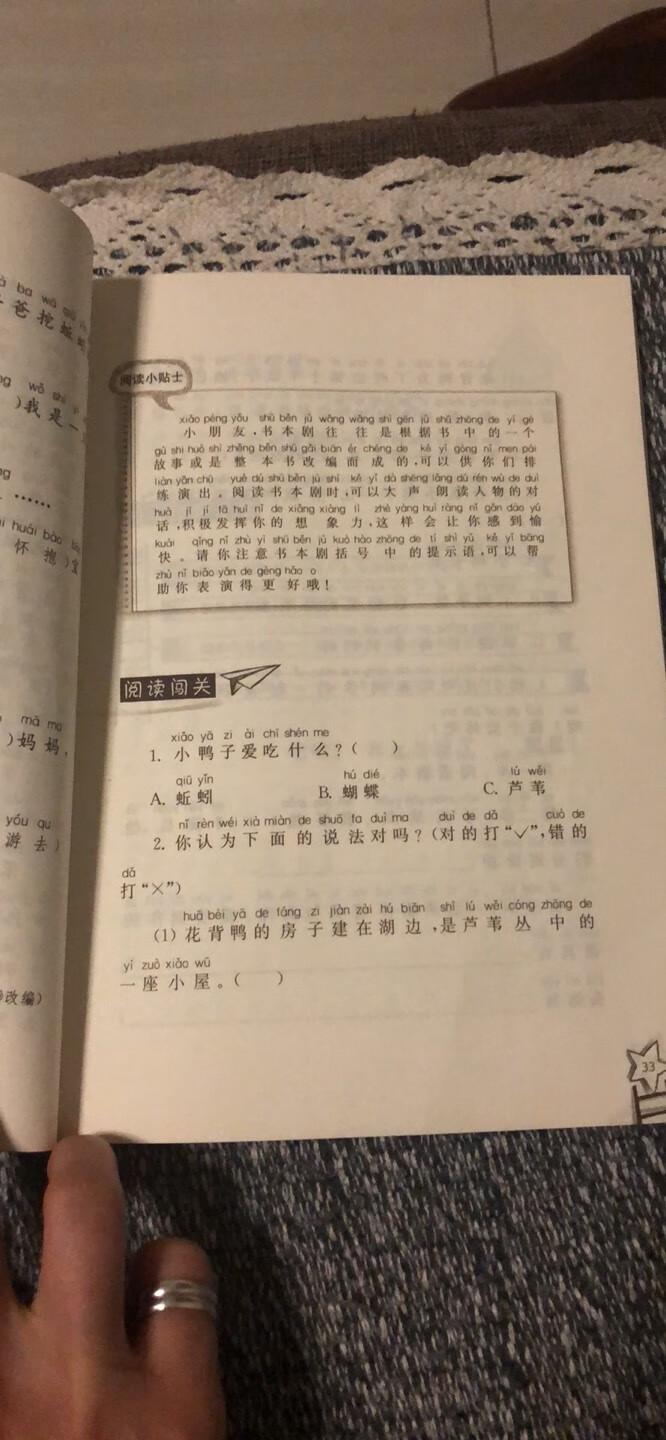 爸挖蚯
)我是一
……
怀抱)宝
)妈妈,
游去)
改编)
阅读小贴士
xiǎo péng yǒu shū běn jù wǎng wǎng shì gēn jù shū zhōng de yí gè
小朋友,书本剧往往是根据书中的一个
gù shi huò shì zhěng běn shū gǎi biān ér chéng de kě yǐ gòng nǐ men pái
故事或是整本书改编而成的,可以供你们排
liàn yǎn chū yuè dú shū běn jù shí kě yǐ dà shēng lǎng dú rén wù de duì
练演出。阅读书本剧时,可以大声朗读人物的对
huà jī jí fā huī nǐ de xiǎng xiàng lì zhè yàng huì ràng nǐ gǎn dào yú
话,积极发挥你的想象力,这样会让你感到愉
kuài qǐng nǐ zhù yì shū běn jù kuò hào zhōng de tí shì yǔ kě yǐ bāng
快。请你注意书本剧括号中的提示语,可以帮
zhù nǐ biǎo yǎn de gèng hǎo o
助你表演得更好哦!
阅读闯关
xiǎo yā zi ài chī shén me
1. 小鸭子爱吃什么?( )
qiū yǐn hú dié lú wěi
A. 蚯蚓 B. 蝴蝶 C. 芦苇
nǐ rèn wéi xià miàn de shuō fa duì ma duì de dǎ cuò de
2. 你认为下面的说法对吗?(对的打“✓”,错的
dǎ
打“×”)
huā bèi yā de fáng zi jiàn zài hú biān shì lú wěi cóng zhōng de
(1) 花背鸭的房子建在湖边,是芦苇丛中的
yí zuò xiǎo wū
一座小屋。( )
33